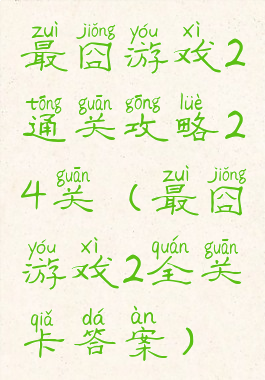 zuì jiǒng yóu xì
最囧游戏2
tōng guān gōng lüè
通关攻略2
guān zuì jiǒng
4关(最囧
yóu xì quán guān
游戏2全关
qiǎ dá àn
卡答案)